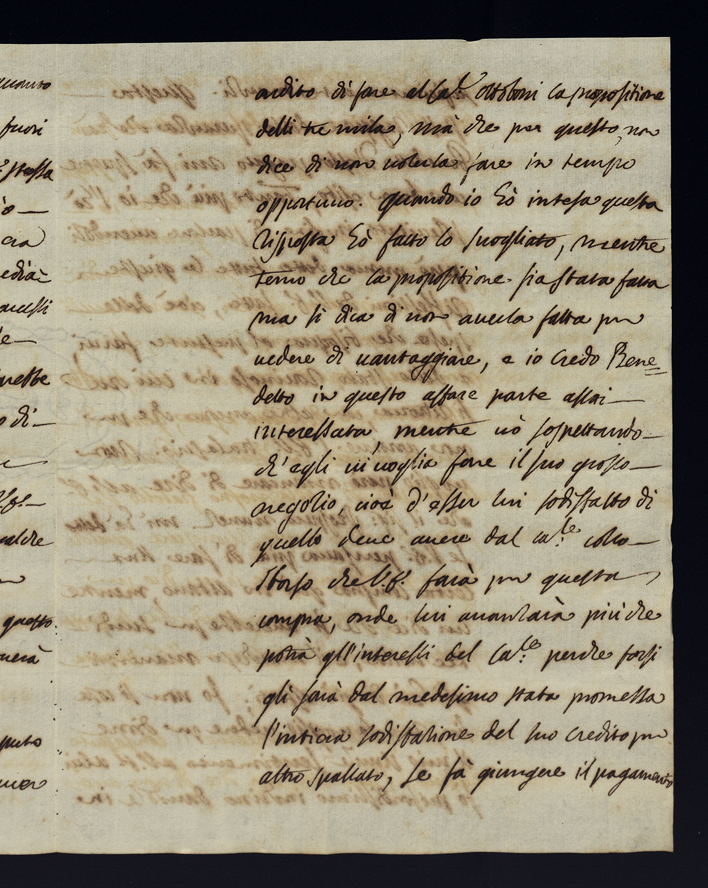 quanto
fuori
stessa
cia
acessi
di-
quasto
sputo
ardito di fare al Ca.le Ottoboni la propositione
delli tre mila, mà che per questo, non
dice di non volerla fare in tempo
opportuno. Quando io hò intesa questa
risposta hò fatto lo svogliato, mentre
temo che la propositione sia stata fatta
ma si dica di non averla fatta per
vedere di vantaggiare, e io credo Bene=
detto in questo affare parte assai
interessata, mentre vò sospettando
ch'egli vi voglia fare il suo grosso
negotio, cioè d'esser lui sodisfatto di
quello deve avere dal Ca.le collo
sborso che V.S. farà per questa
compra, onde lui avantarà più che
potrà gl'interessi del Ca.le perche forsi
gli sarà dal medesimo stata promessa
l'intiera sodisfatione del suo credito per
altro spallato, se fà giungere il pagamento